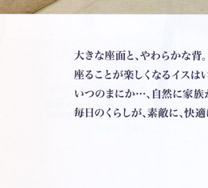 大きな座面と、やわらかな背。
座ることが楽しくなるイスはい
いつのまにか…、自然に家族が
毎日のくらしが、素敵に、快適に